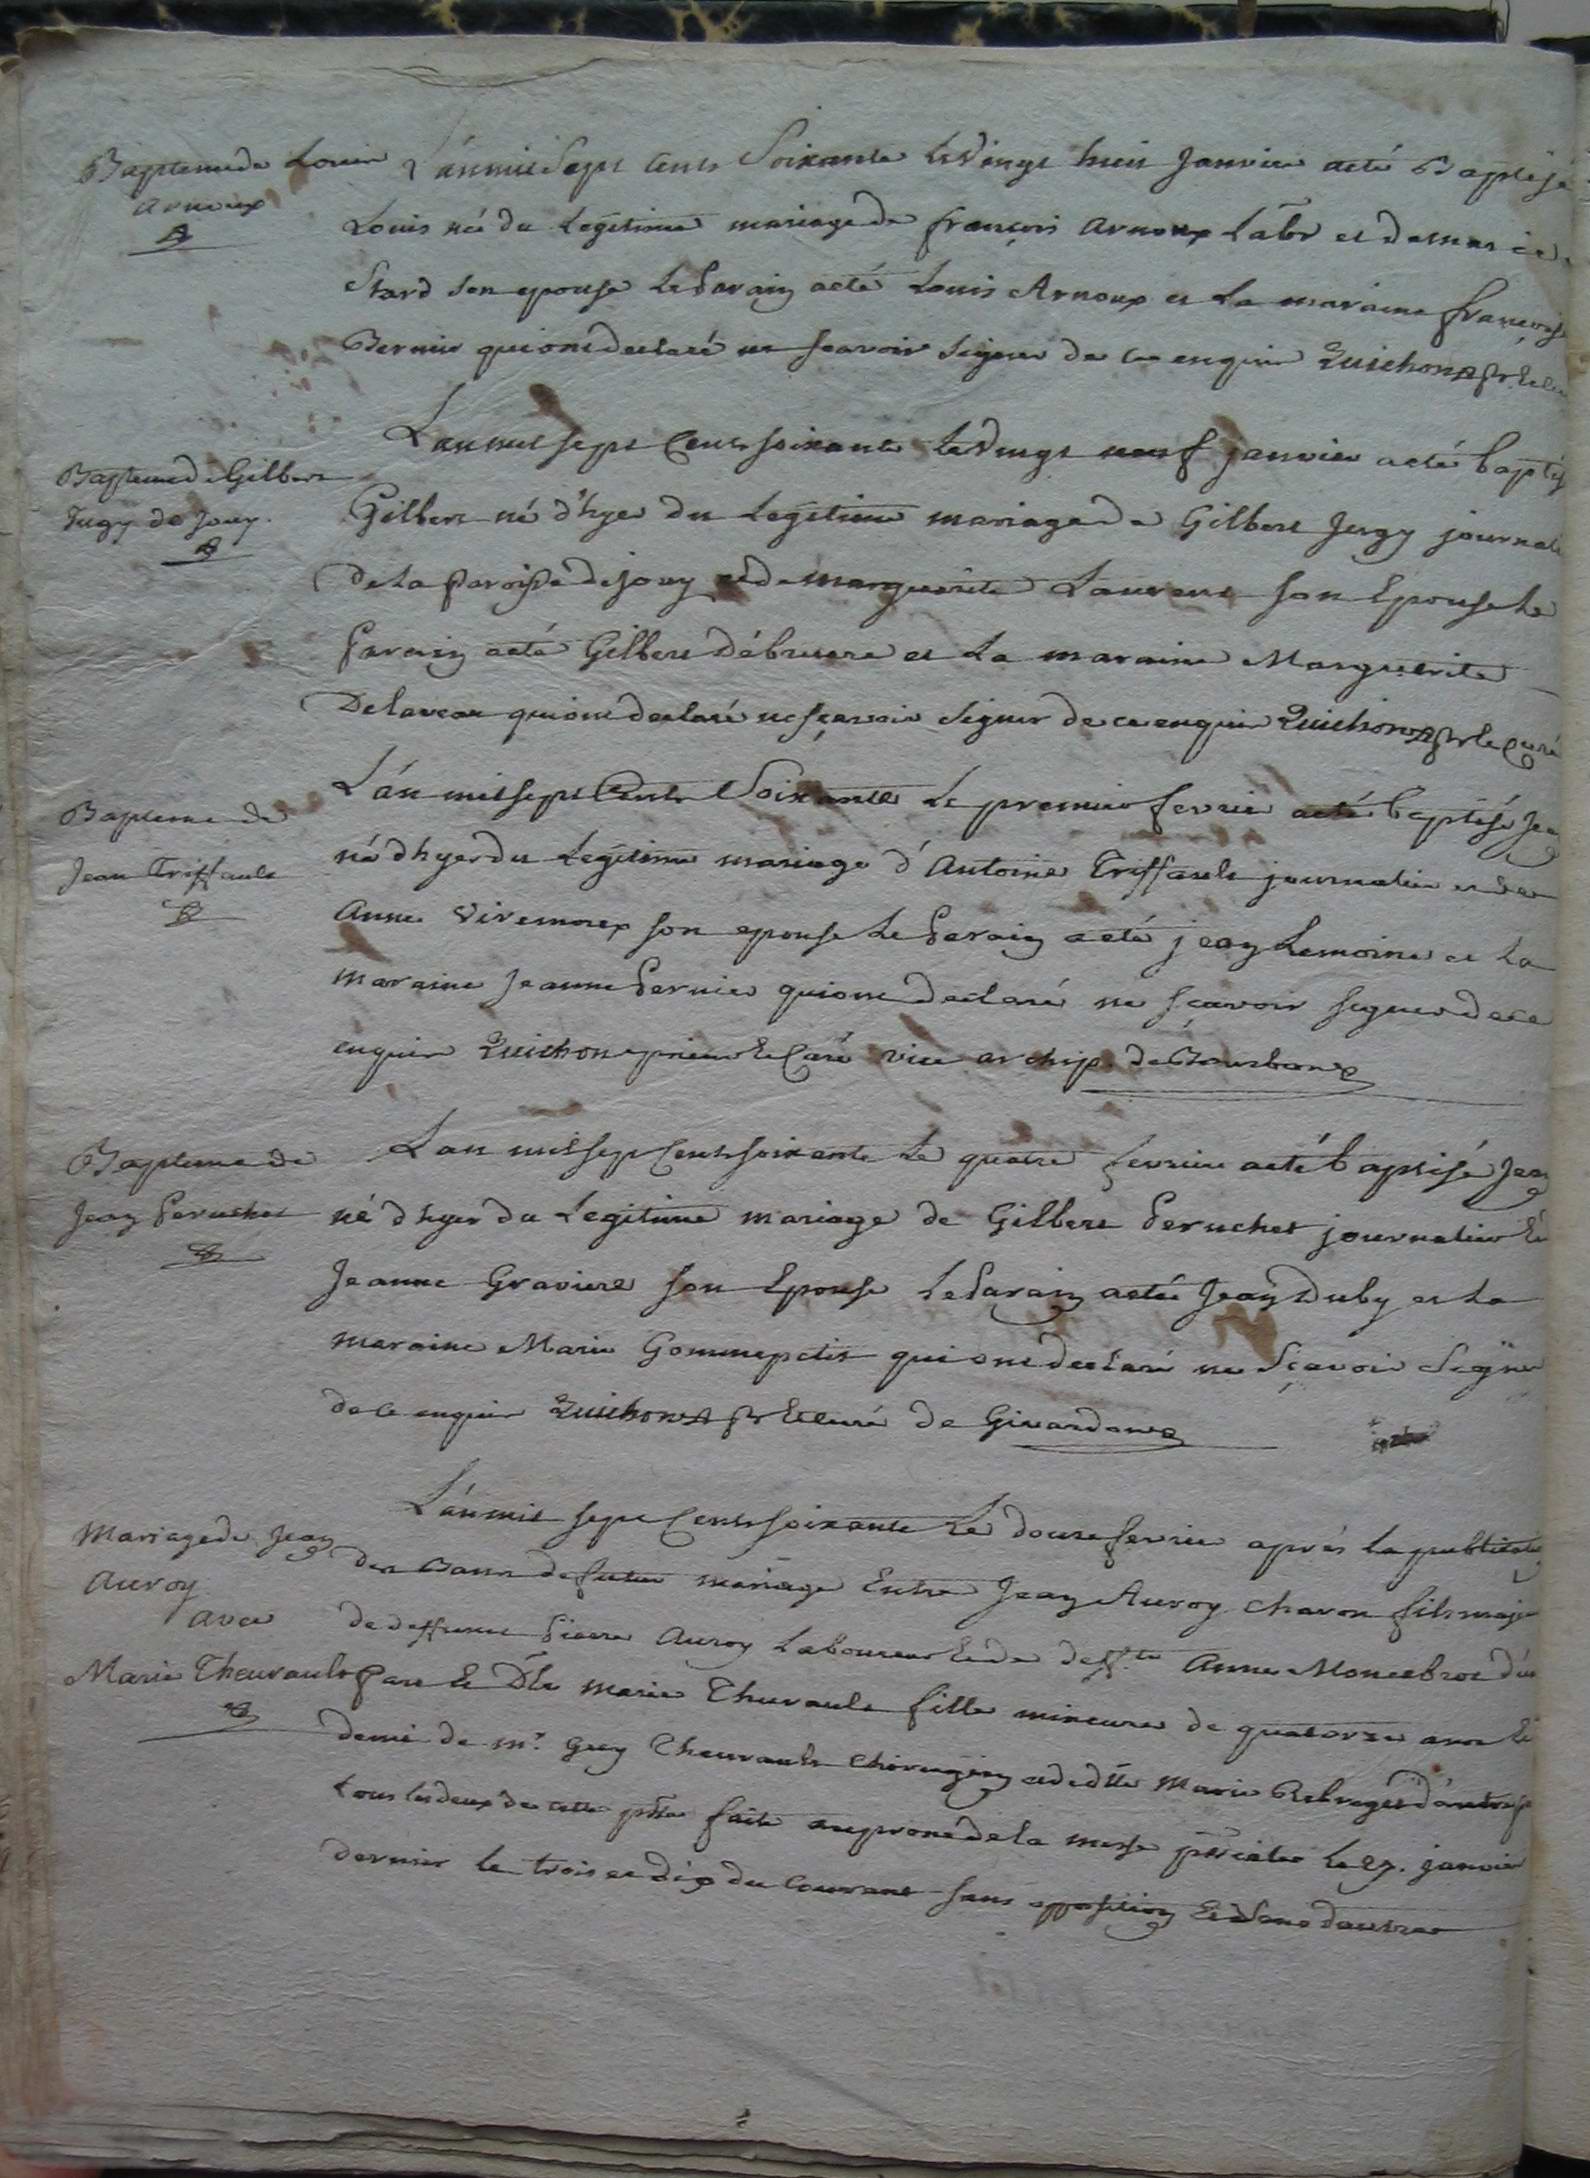 Bapteme de Louis
Arnoux
L'an mil Sept cents Soixante le Vingt huit Janvier a eté Baptisé
Louis né du Legitime mariage de françois Arnoux Labr et de marie
Stard son epouse le Parain a eté Louis Arnoux et La maraine françoise
Bernier qui ont declaré ne sçavoir signer de ce enquis Quichon pr. & cu
Bapteme de Gilbert
Jugy de Jouy.
L'an mil sept Cents soixante le Vingt neuf janvier a eté baptisé
Gilbert né d'hyer du Legitime mariage de Gilbert Jugy journal
de la Paroisse de jouy et de marguerite Laurent son Epouse Le
Parain a eté Gilbert débruere et La maraine Marguerite
Delaveau qui ont declaré ne sçavoir signer de ce enquis Quichon pr le curé
Bapteme de
Jean Triffault
L'an mil sept Cents Soixante Le premier fevrier a eté baptisé Jean
né d'hyer du Legitime mariage d'Antoine Triffault journalier et de
Anne Viremoux son epouse Le Parain a eté jean Lemoine et La
maraine Jeanne Pernier qui ont declaré ne sçavoir signer de ce
enquis Quichon prieur & Curé vice archip. de Bourbon
Bapteme de
Jean Peruchet
L'an mil sept Cents soixante Le quatre fevrier a eté baptisé Jean
né d'hyer du Legitime mariage de Gilbert Peruchet journalier &
Jeanne Graviere son Epouse Le Parain a eté Jean Duby et La
maraine Marie Gommepetit qui ont declaré ne Sçavoir Signer
de ce enquis Quichon pr & curé de Givardon
Mariage de Jean
Auroy
avec
Marie Theurault
L'an mil sept Cents soixante Le douze fevrier après la publication
des Bans de futur mariage Entre Jean Auroy charon fils majeur
de deffunct Pierre Auroy Laboureur & de deff.te Anne d'une
Part & Dlle marie Theurault fille mineure de quatorze ans &
demi de mr. Guy Theurault Chirugien et de dlle Marie d'autre part
tous les deux de cette psse faite au prone de la messe pssiale le 27. janvier
dernier le trois et dix du Courant sans opposition & Sans d'autres